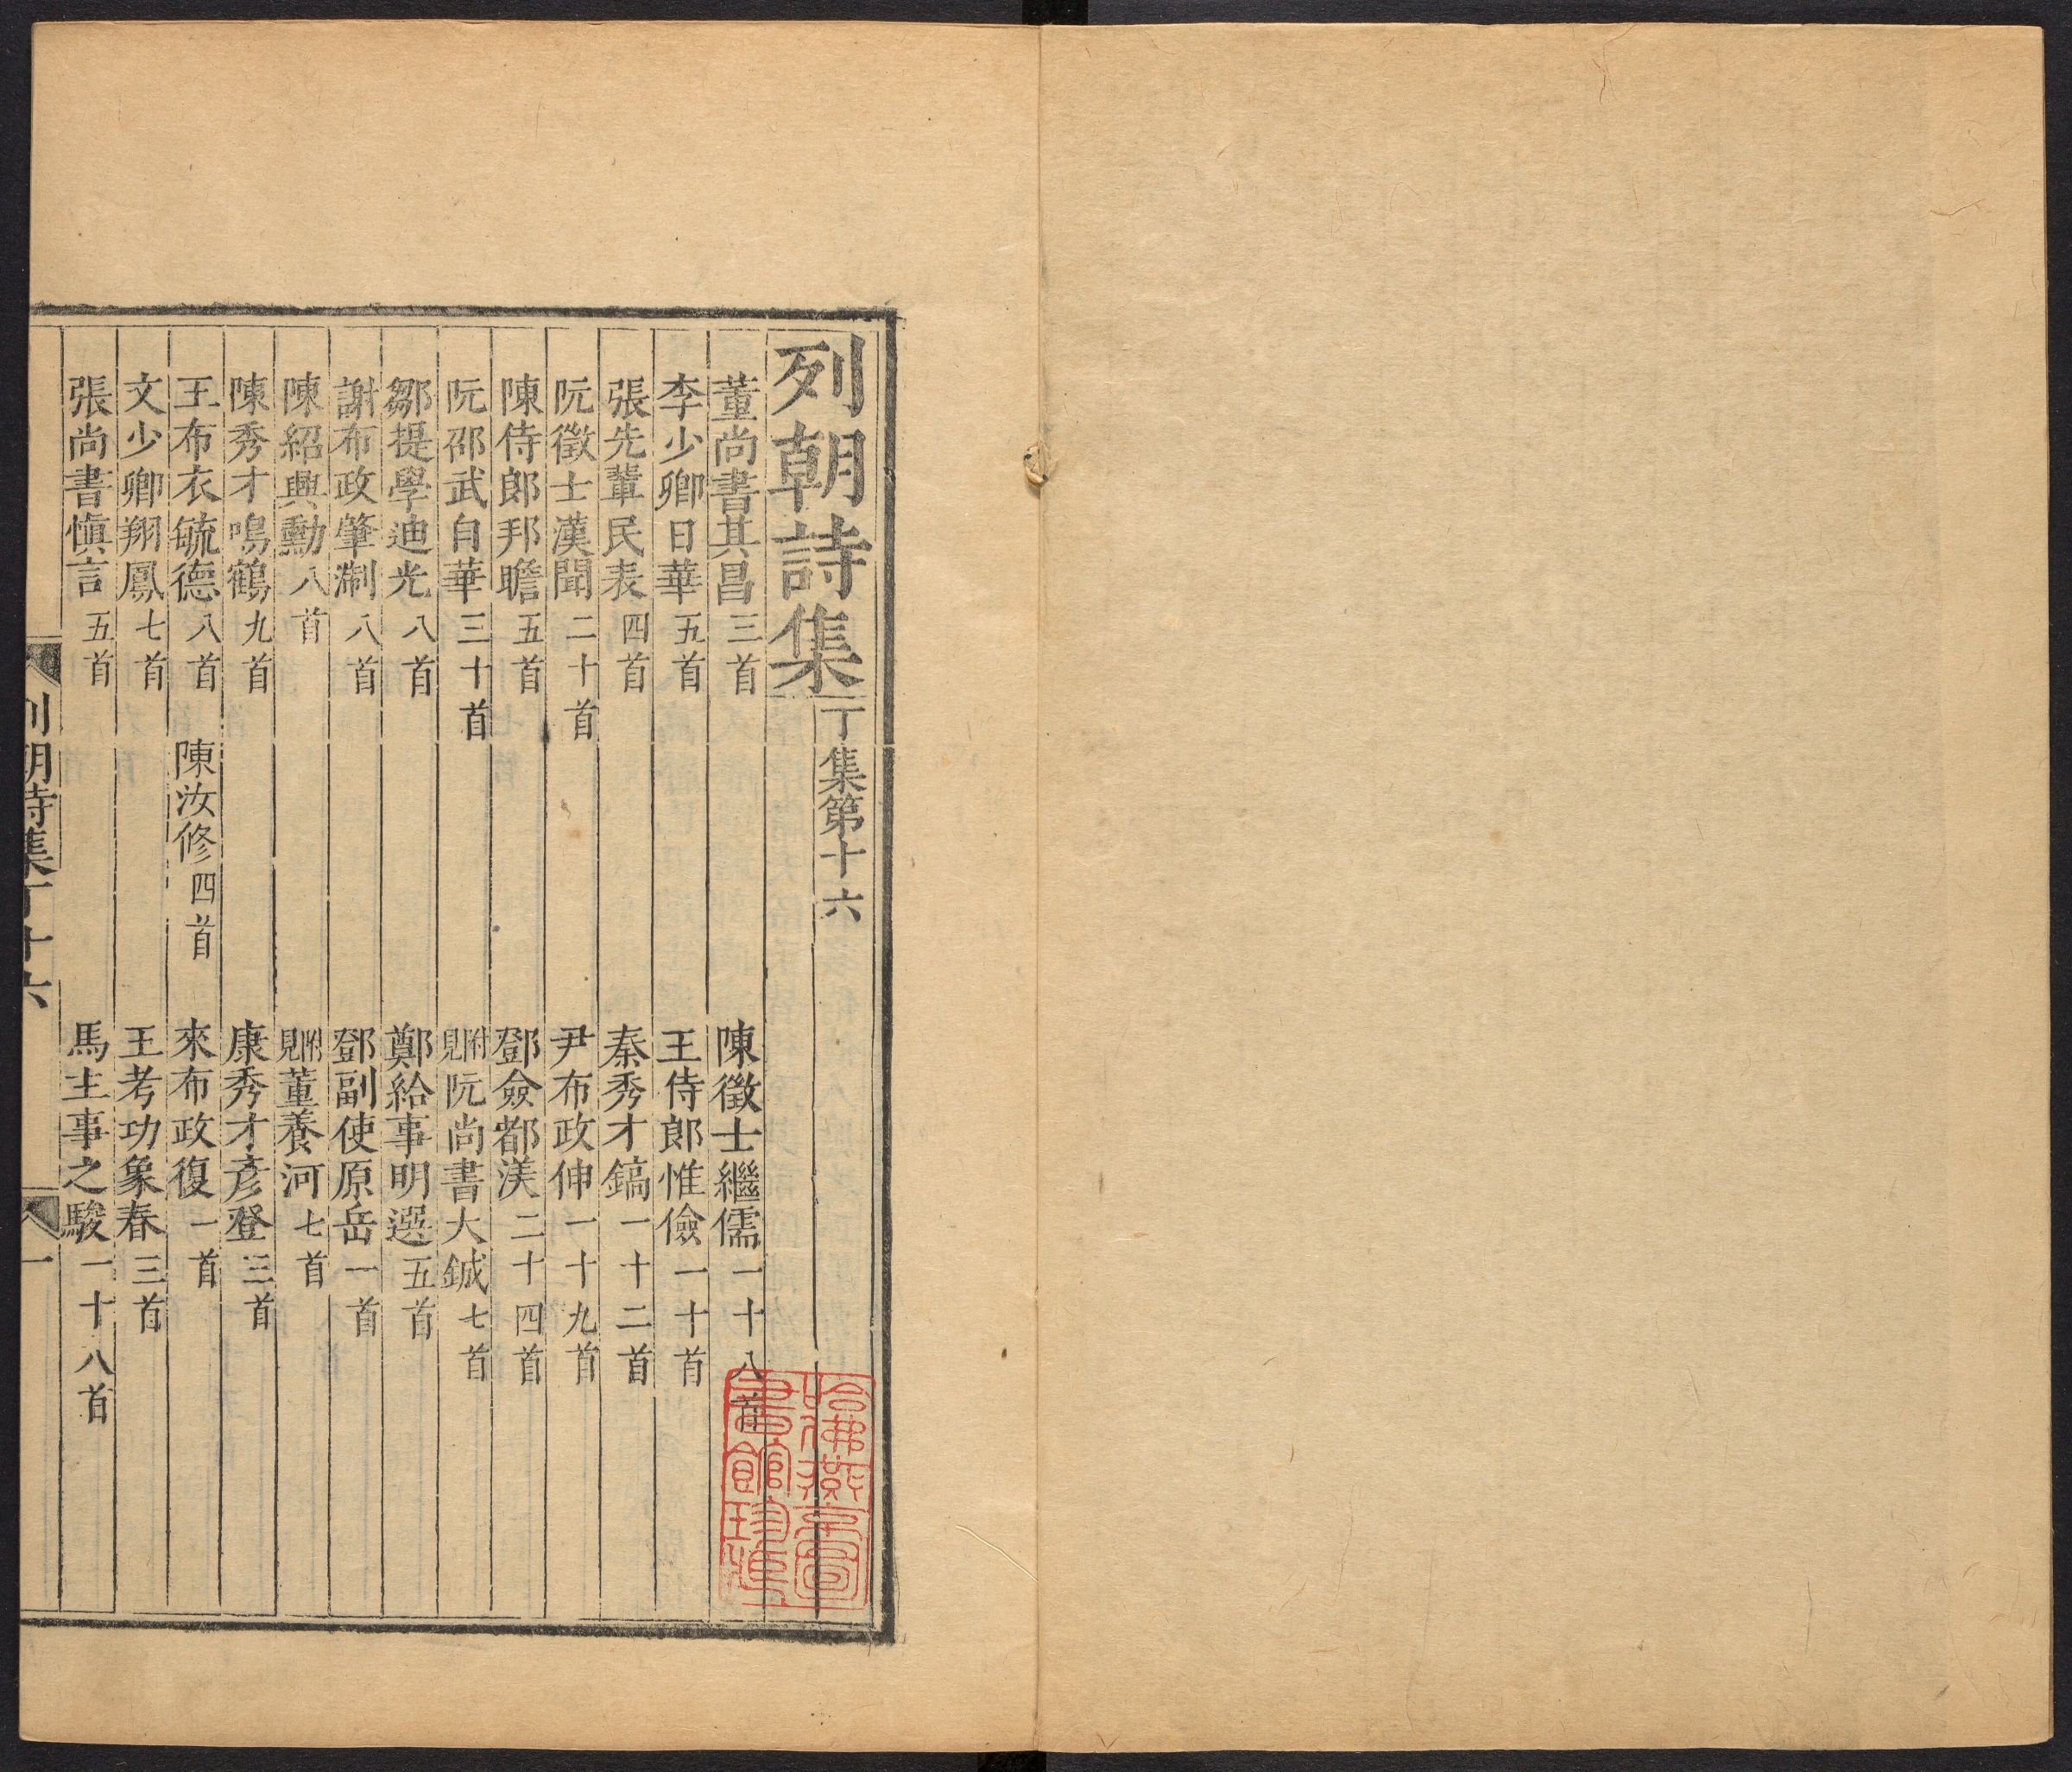 列朝詩集丁集第十六
董尚書其昌三首 陳徵士繼儒一十八首
李少卿日華五首 王侍郎惟儉一十首
張先輩民表四首 秦秀才鎬一十二首
阮徵士漢聞二十首 尹布政伸一十九首
陳侍郎邦瞻五首 鄧僉都渼二十四首
阮邵武自華三十首 附見阮尚書大鋮七首
鄒提學迪光八首 鄭給事明選五首
謝布政肇淛八首 鄧副使原岳一首
陳紹興勳八首 附見董養河七首
陳秀才鳴鶴九首 康秀才彥登三首
王布衣毓德八首 陳汝修四首 來布政復一首
文少卿翔鳳七首 王考功象春三首
張尚書慎言五首 馬主事之駿一十八首
列朝詩集丁十六 一
哈佛燕京圖書館珍藏